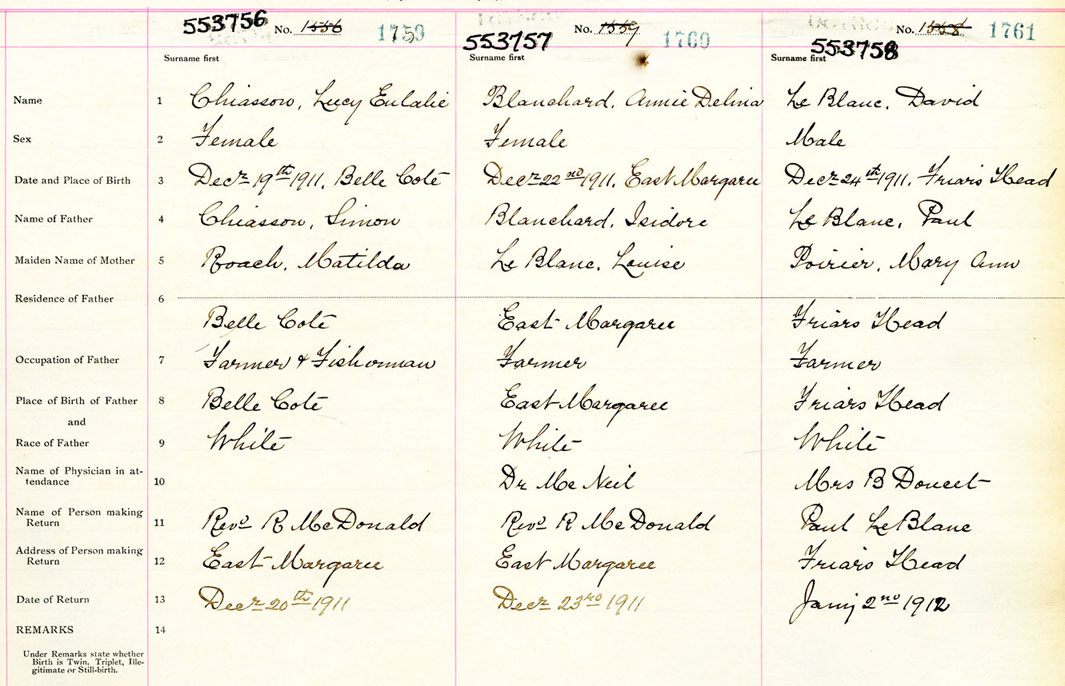 553756 No. 1556 1759 553757 No. 1559 1760 553758 No. 1558 1761
Surname first Surname first Surname first
Name 1 Chiasson, Lucy Eulalie Blanchard, Annie Delina Le Blanc, David
Sex 2 Female Female Male
Date and Place of Birth 3 Decr 19th 1911, Belle Coté Decr 22nd 1911, East Margaree Decr 24th 1911, Friars Head
Name of Father 4 Chiasson, Simon Blanchard, Isidore Le Blanc, Paul
Maiden Name of Mother 5 Roach, Matilda Le Blanc, Louise Poirier, Mary Ann
Residence of Father 6
Belle Coté East Margaree Friars Head
Occupation of Father 7 Farmer & Fisherman Farmer Farmer
Place of Birth of Father 8 Belle Coté East Margaree Friars Head
and
Race of Father 9 White White White
Name of Physician in at-
tendance 10 Dr Mc Neil Mrs B Doucet
Name of Person making
Return 11 Revd R McDonald Revd R McDonald Paul LeBlanc
Address of Person making
Return 12 East Margaree East Margaree Friars Head
Date of Return 13 Decr 20th 1911 Decr 23rd 1911 Jany 2nd 1912
REMARKS 14
Under Remarks state whether
Birth is Twin, Triplet, Ille-
gitimate or Still-birth.